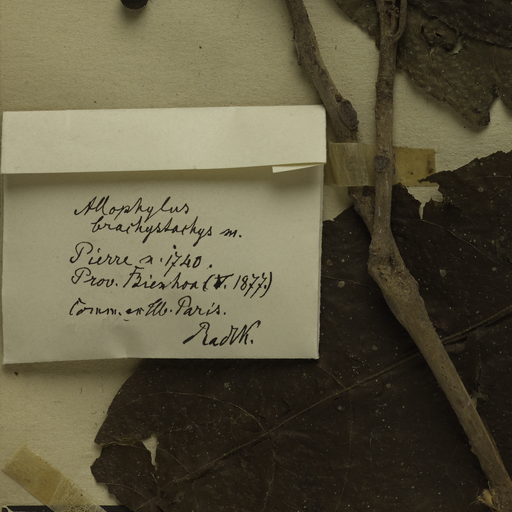 Allophylus
brachystachys m.
Pierre n. 1740.
Prov. Bienhoa (V. 1877.)
Comm. ex Hb. Paris.
Radlk.